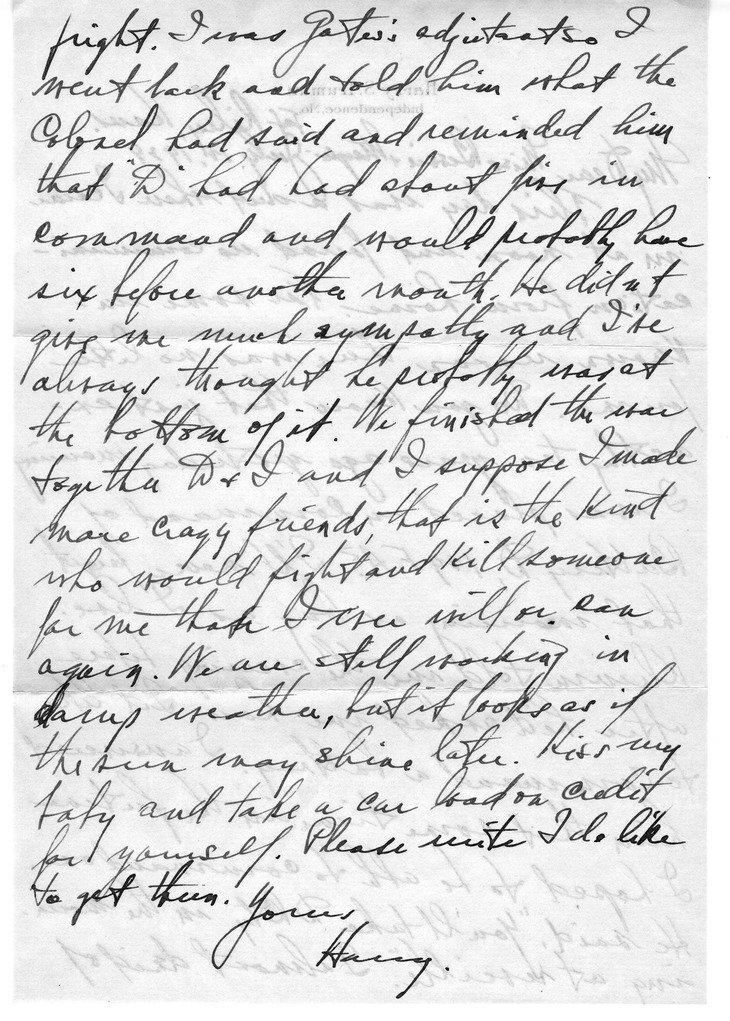 fright. I was Gates's adjutant so I
went back and told him what the
Colonel had said and reminded him
that "D" had had about five in
command and would probably have
six before another month. He didn't
give me much sympathy and I've
always thought he probably was at
the bottom of it. We finished the war
together D & I and I suppose I made
more crazy friends, that is the kind
who would fight and kill someone
for me than I ever will or can
again. We are still working in
damp weather, but it looks as if
the sun may shine later. Kiss my
baby and take a car load on credit
for yourself. Please write I do like
to get them. Yours
Harry.